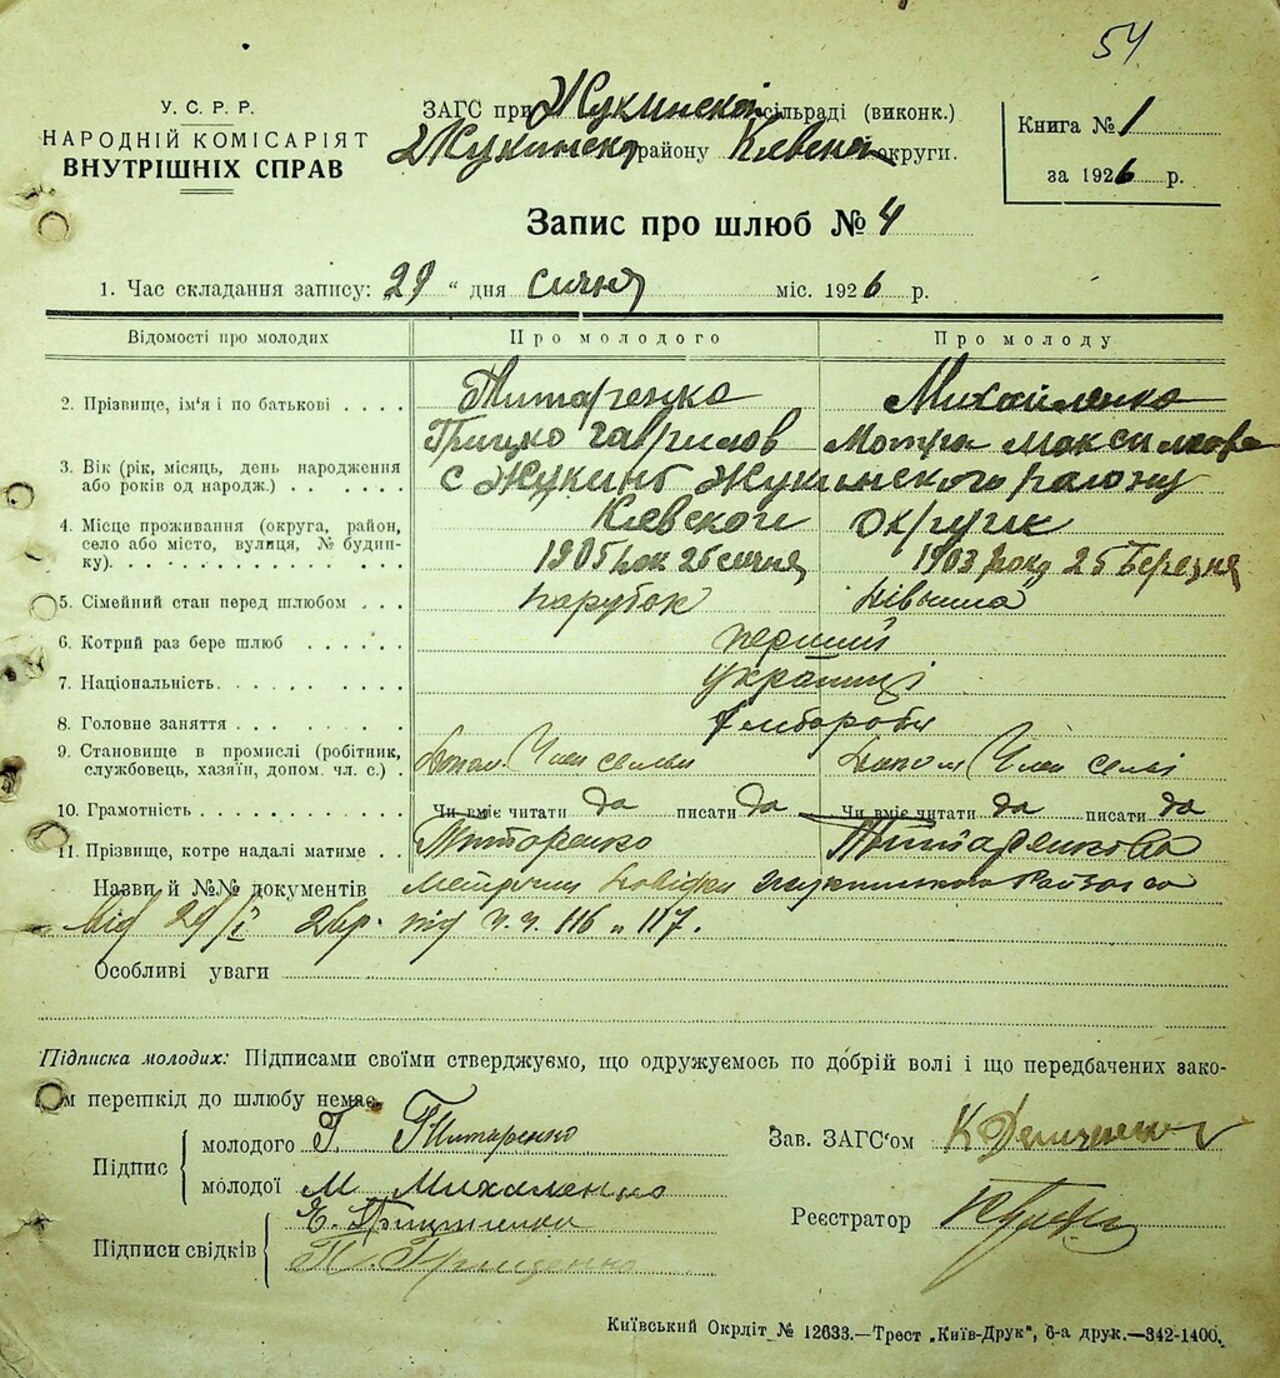 54
У. С. Р. Р.
НАРОДНІЙ КОМІСАРІЯТ
ВНУТРІШНІХ СПРАВ
ЗАГС при Жукинскої сільраді (виконк.)
Жукинско району Киевско округи.
Книга № 1
за 1926 р.
Запис про шлюб № 4
1. Час складання запису: 29 “ дня січня міс. 1926 р.
Відомості про молодих Про молодого Про молоду
2. Прізвище, ім'я і по батькові Титаренко Михайленко
Грицко Гаврилов Мотра Максимова
3. Вік (рік, місяць, день народження
або років од народж.) с Жукинъ Жукинского району
4. Місце проживання (округа, район, Киевской округи
село або місто, вулиця, № будин-
ку). 1905 рок 25 січня 1903 року 25 Березня
5. Сімейний стан перед шлюбом парубок дівчина
6. Котрий раз бере шлюб перший
7. Національність. українці
8. Головне заняття хлібороби
9. Становище в промислі (робітник,
службовець, хазяїн, допом. чл. с.) Допом. Член семьи Допом Член семі
10. Грамотність Чи вміє читати да писати да Чи вміє читати да писати да
11. Прізвище, котре надалі матиме Титаренко Титаренкова
Назви й №№ документів Метричні довідки Жукинського Райзагса
від 29/I 26р. під ч.ч. 116 и 117.
Особливі уваги
Підписка молодих: Підписами своїми стверджуємо, що одружуємось по добрій волі і що передбачених зако-
м перешкід до шлюбу немає.
Підпис
молодого Г. Титаренко
молодої М Михаленко
Зав. ЗАГС'ом К
Реєстратор
Підписи свідків Е.
П. Грищенко
Київський Окрліт № 12633.—Трест „Київ-Друк“, 6-а друк.—342-1400.